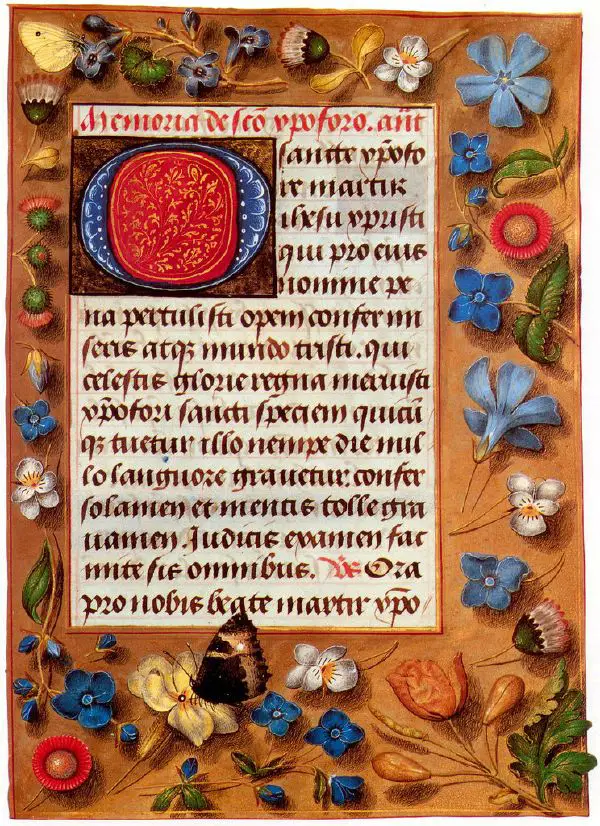 Memoria de scō xpoforo. añt
O sancte xpofo
re martir
ihesu xpristi
qui pro eius
nomine pe
na pertulisti opem confer mi
seris atqꝫ mundo tristi. qui
celestis glorie regna meruisti
xpofori sancti speciem quicū
qꝫ tuetur illo nempe die nul
lo languore grauetur. confer
solamen et mentis tolle gra
uamen. Judicis examen fac
mite sis omnibus. Vs Ora
pro nobis beate martir xpo/